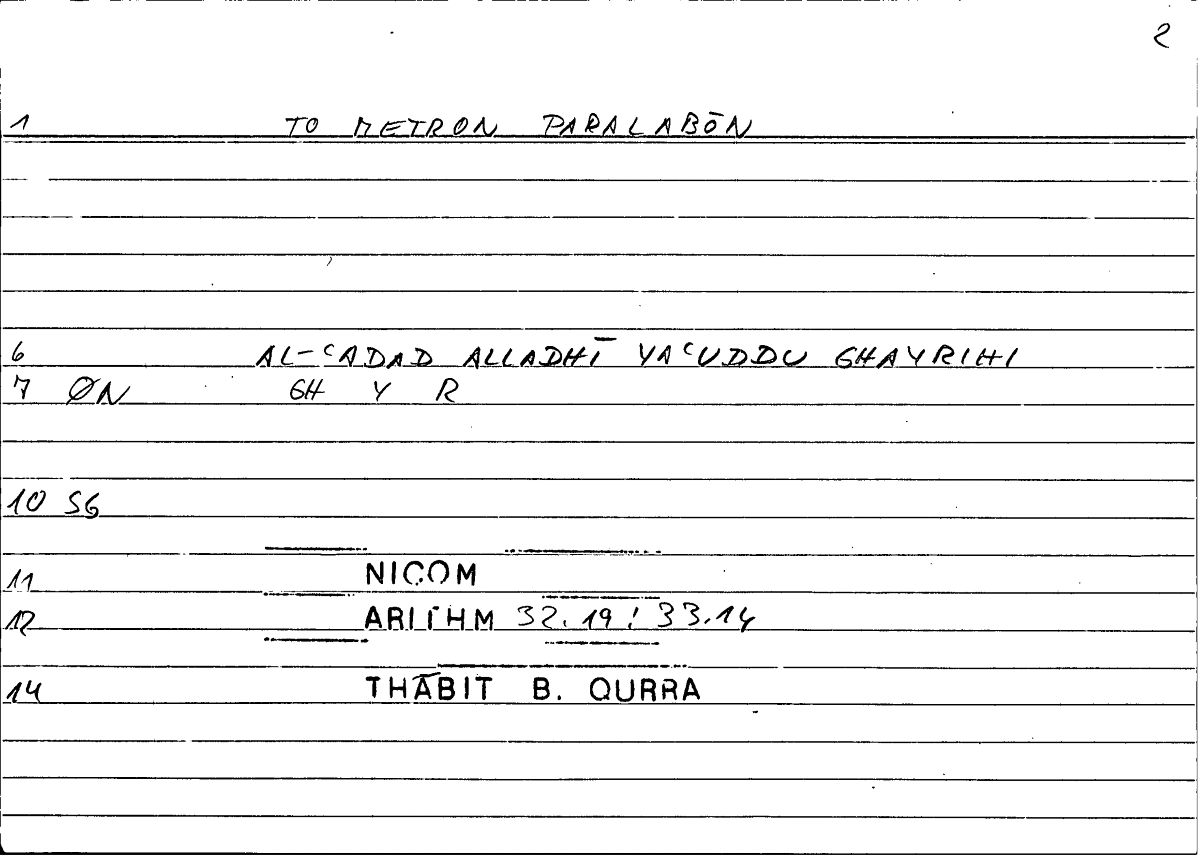 2
1 TO METRON PARALABŌN
6 AL-ʿADAD ALLADHĪ YAʿUDDU GHAYRIHI
7 ØN GH Y R
10 SG
11 NICOM
12 ARITHM 32.19; 33.14
14 THĀBIT B. QURRA